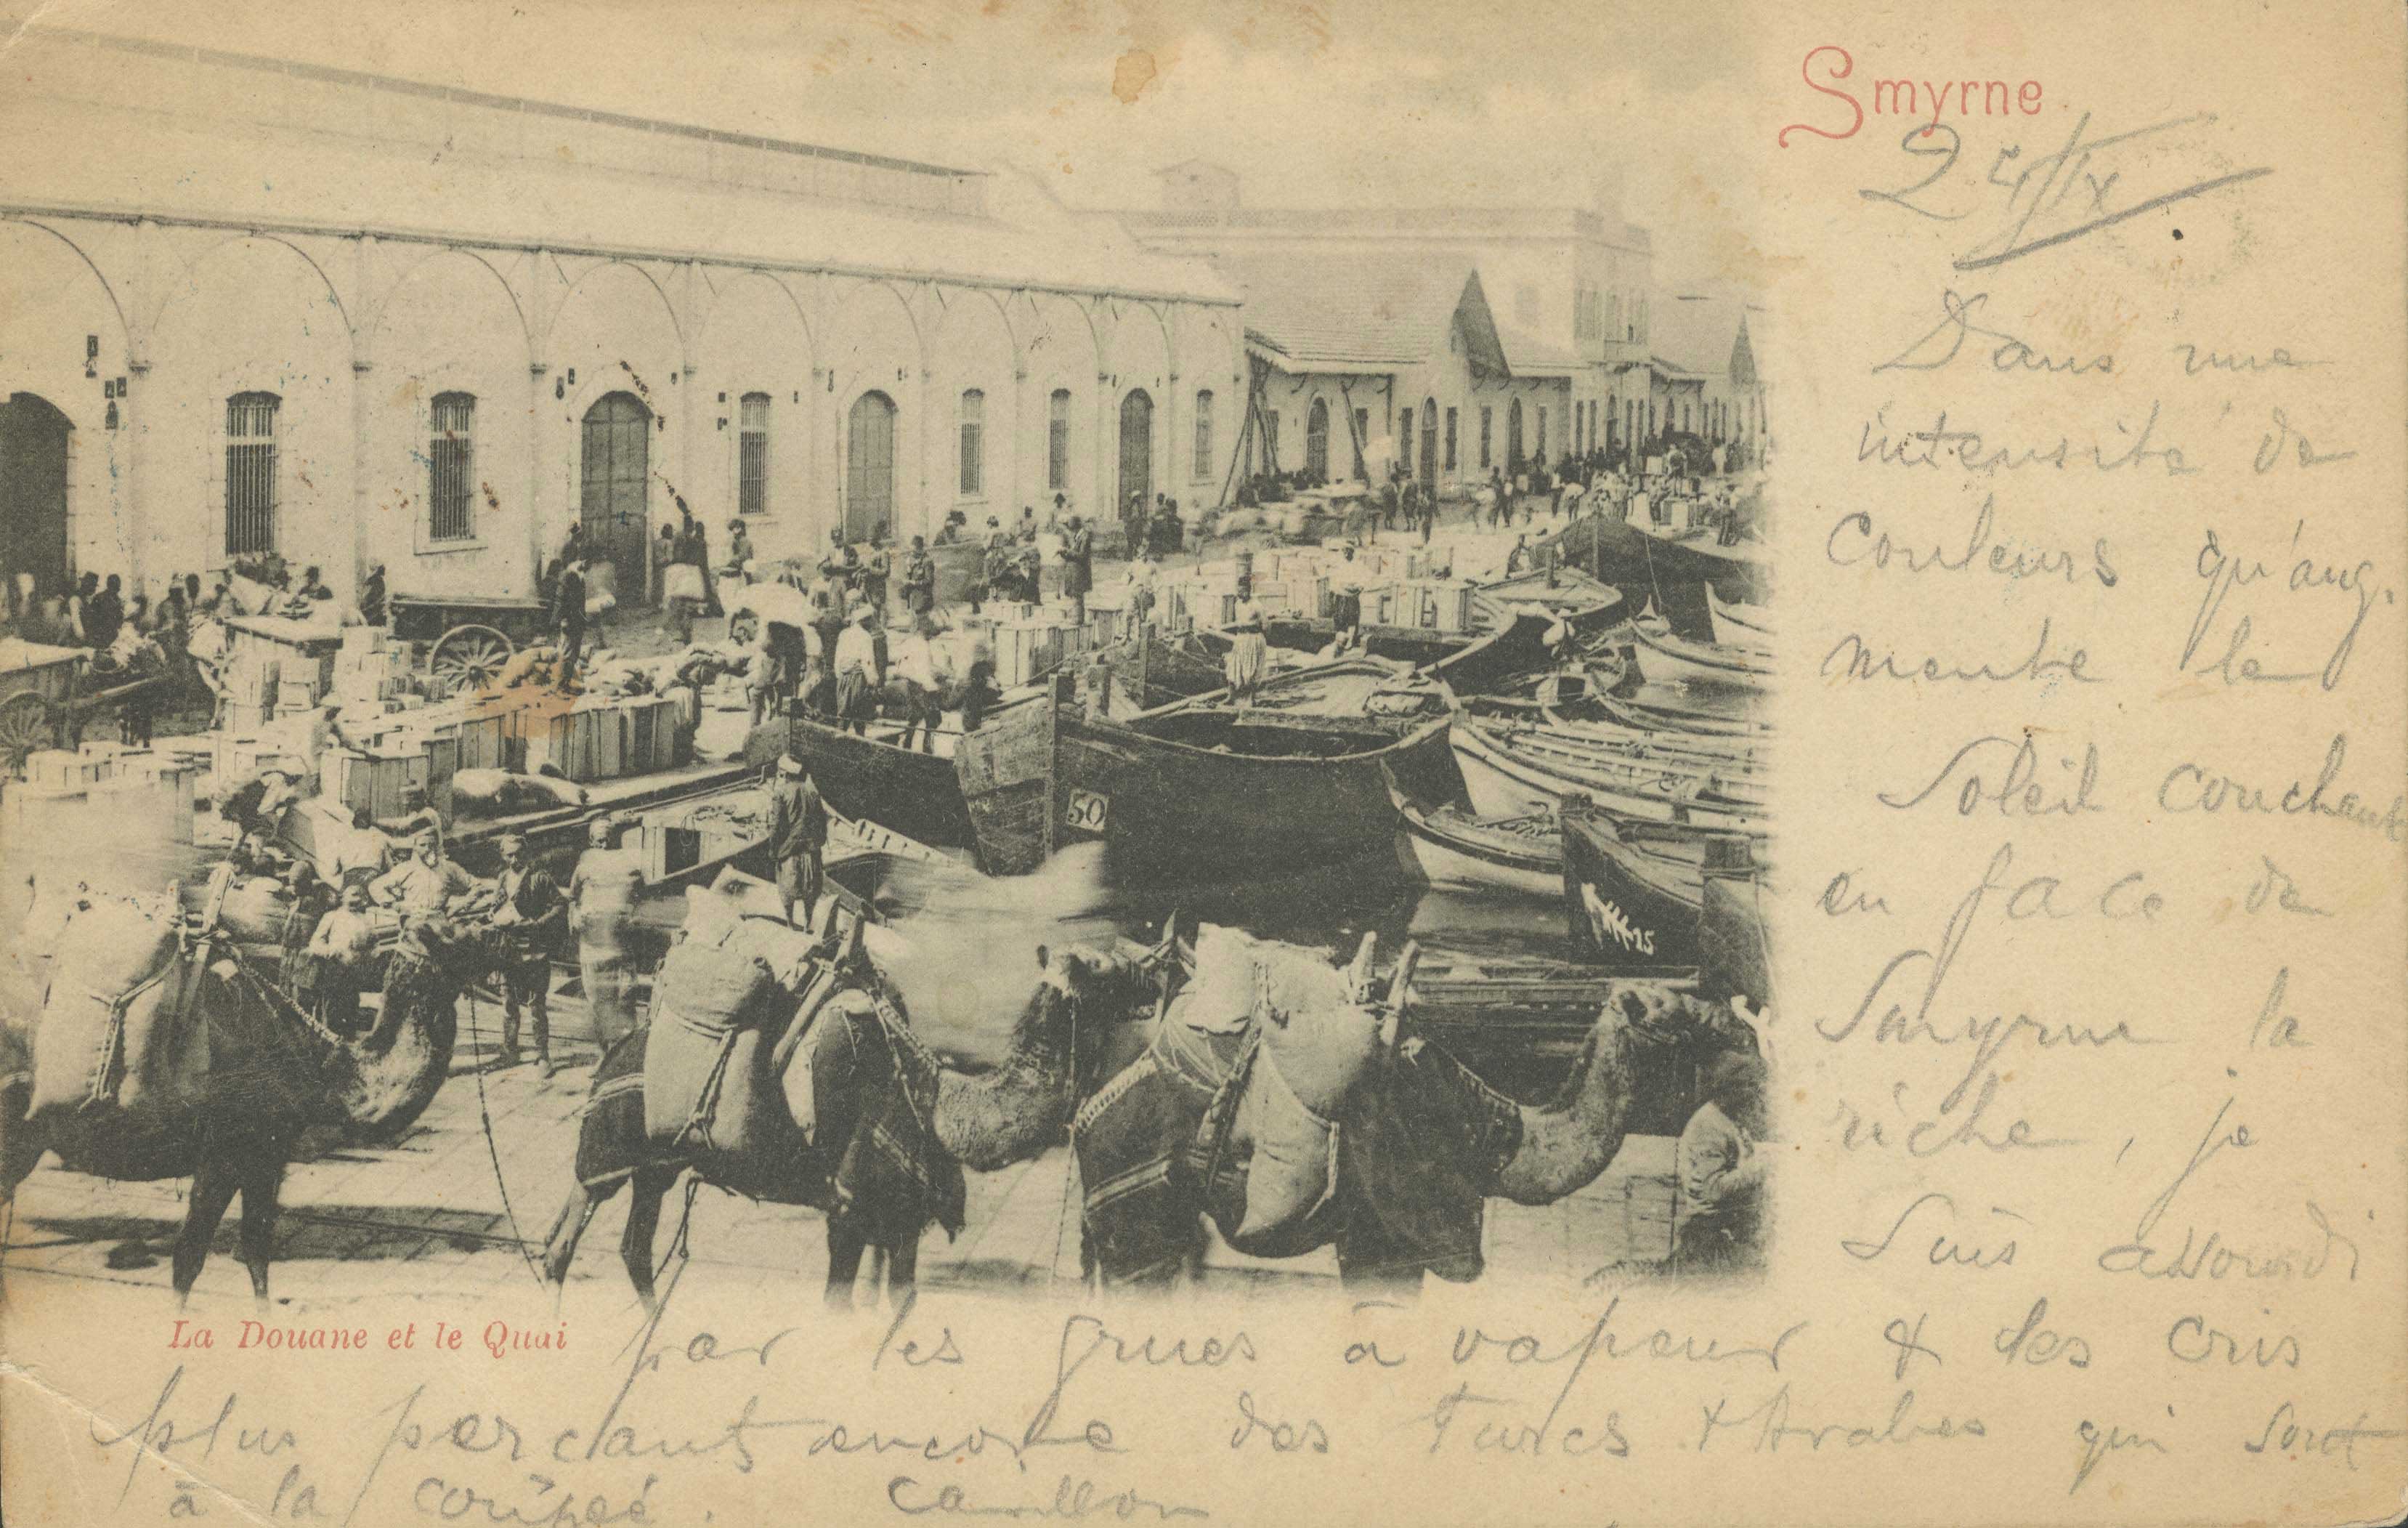 Smyrne
24/IX
Dans une
intensité de
couleurs qu'aug.
mente le
Soleil couchant
en face de
Smyrne la
riche, je
suis assourdi
La Douane et le Quai
par les grues à vapeur & les cris
plus perçants encore des Turcs & Arabes qui sont
à la coupée. Carillon
50
15